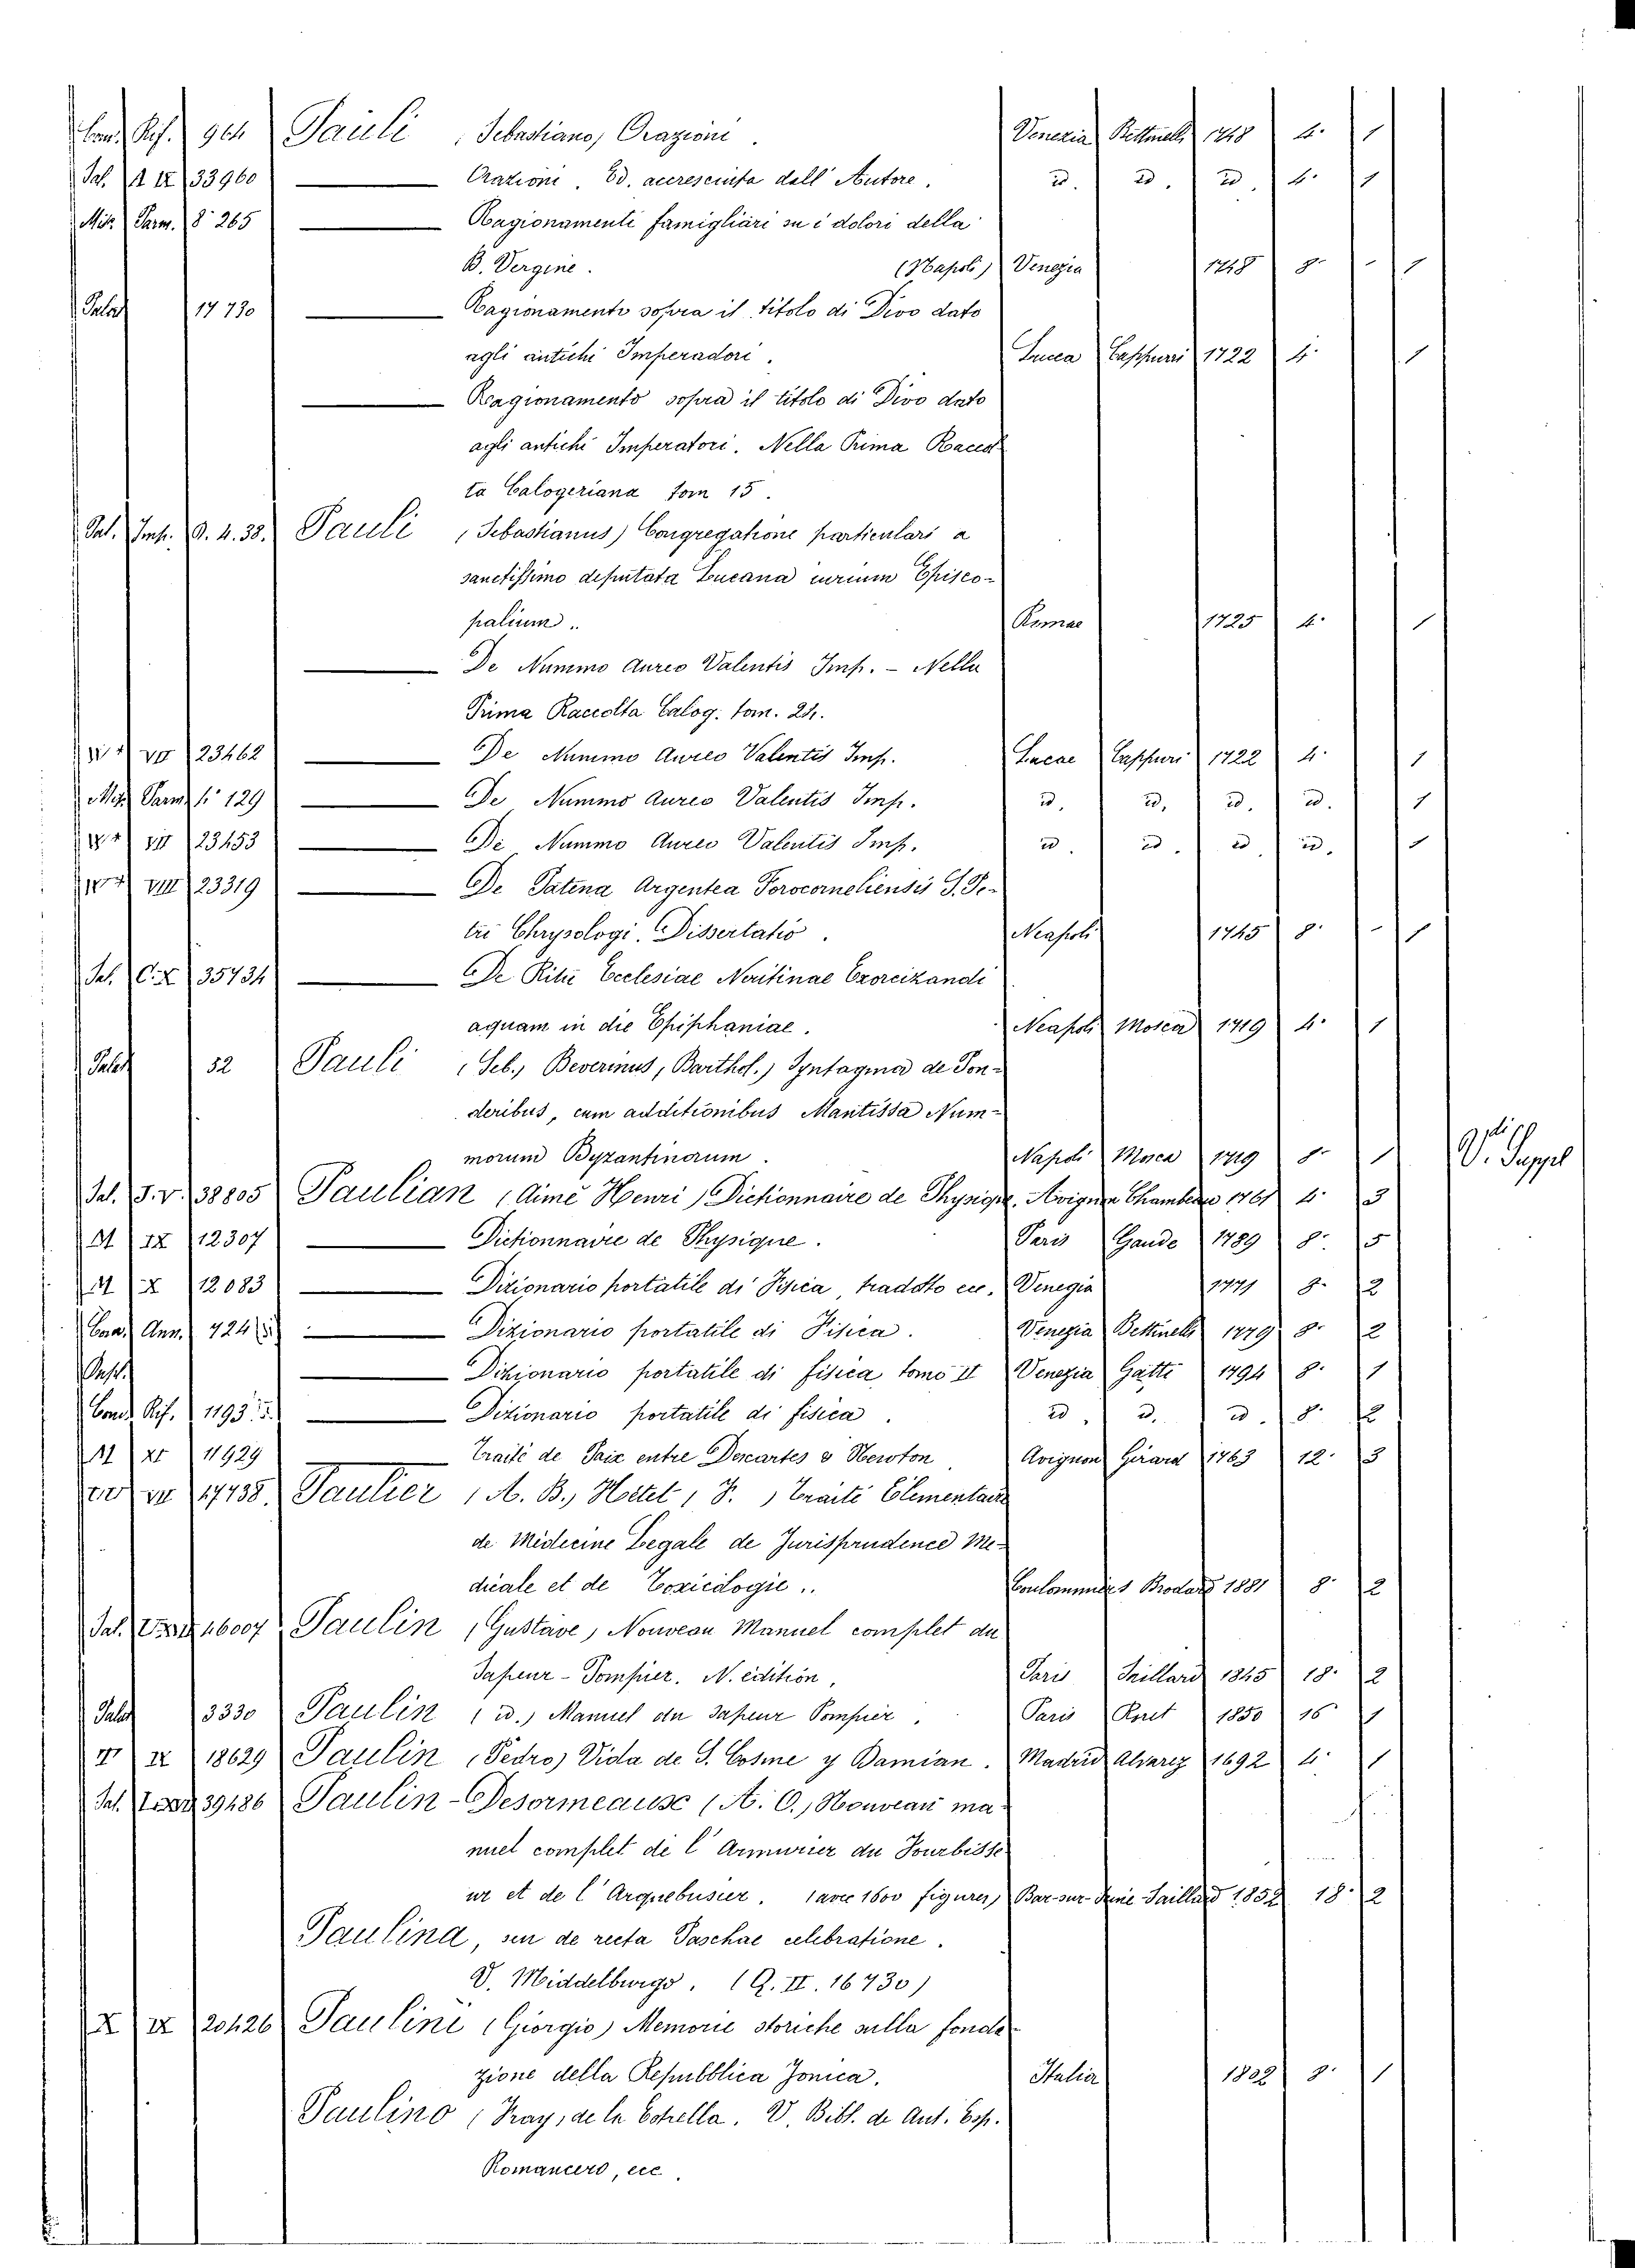 Rif. Pauli (Sebastiano) Orazioni. Venezia Bettinelli 1748 4. 1
Sal. 33960 Orazioni. Ed. accresciuta dall' Autore. id. id. id. 4. 1
Misc. Parm. 8° 265 Ragionamenti famigliari su i dolori della
B. Vergine. (Napoli) Venezia 1748 8° 1
Palat 17730 Ragionamento sopra il titolo di Divo dato
agli antichi Imperadori. Lucca Cappurri 1722 4. 1
Ragionamento sopra il titolo di Divo dato
agli antichi Imperatori. Nella Prima Raccol
ta Calogeriana tom 15.
Sal. Imp. Q. 4. 38. Pauli (Sebastianus) Congregatione particulari a
sanctissimo deputata Lucana iurium Episco-
palium. Romae 1725 4. 1
De Nummo aureo Valentis Imp. - Nella
Prima Raccolta Calog. tom. 24.
23462 De Nummo Aureo Valentis Imp. Lucae Cappuri 1722 4. 1
Misc. Parm. 4° 129 De Nummo Aureo Valentis Imp. id. id. id. id. 1
23453 De Nummo Aureo Valentis Imp. id. id. id. id. 1
VIII 23319 De Patena Argentea Forocorneliensis S. Pe-
tri Chrysologi. Dissertatio. Neapoli 1745 8. 1
Sal. C. X 35734 De Ritu Ecclesiae Neritinae Exorcizandi
aquam in die Epiphaniae. Neapoli Mosca 1719 4. 1
Palat 52 Pauli (Seb., Beverinus, Barthol.) Syntagma de Pon-
deribus, cum additionibus Mantissa Num-
morum Byzantinorum. Napoli Mosca 1719 8. 1 V. Suppl
Sal. F. V. 38805 Paulian (Aimé Henri) Dictionnaire de Physique. Avignon Chambeau 1761 4. 3
IX 12307 Dictionnaire de Physique. Paris Gaude 1789 8. 5
X 12083 Dizionario portatile di Fisica, tradotto ecc. Venezia 1771 8. 2
Ann. 724 Dizionario portatile di Fisica. Venezia Bettinelli 1779 8. 2
Dizionario portatile di fisica tomo II Venezia Gatti 1794 8. 1
Cons. Rif. 1193 Dizionario portatile di fisica. id. id. id. 8. 2
11929 Traité de Paix entre Descartes e Newton. Avignon Girard 1763 12. 3
17738. Paulier (A. B., Hetet, F.) Traité Elementaire
de Médecine Legale de Jurisprudence Me-
dicale et de Toxicologie. Coulommiers Brodard 1881 8. 2
Sal. 46007 Paulin (Gustave) Nouveau Manuel complet du
Sapeur-Pompier. N. édition. Paris Saillard 1845 18. 2
Palat 3330 Paulin (id.) Manuel du Sapeur Pompier. Paris Roret 1850 16 1
IX 18629 Paulin (Pedro) Vida de S. Cosme y Damian. Madrid Alvarez 1692 4. 1
Sal. 39486 Paulin-Desormeaux (A. O.) Nouveau ma-
nuel complet de l'Armurier du Fourbisse-
ur et de l'Arquebusier. (avec 1600 figures) Bar-sur-Seine Saillard 1852 18. 2
Paulina, seu de recta Paschae celebratione.
V. Middelburgo. (Q. II. 16730)
X IX 20426 Paulini (Giorgio) Memorie storiche sulla fonda-
zione della Repubblica Jonica. Italia 1802 8. 1
Paulino (Fray, de la Estrella. V. Bibl. de Aut. Esp.
Romancero, ecc.